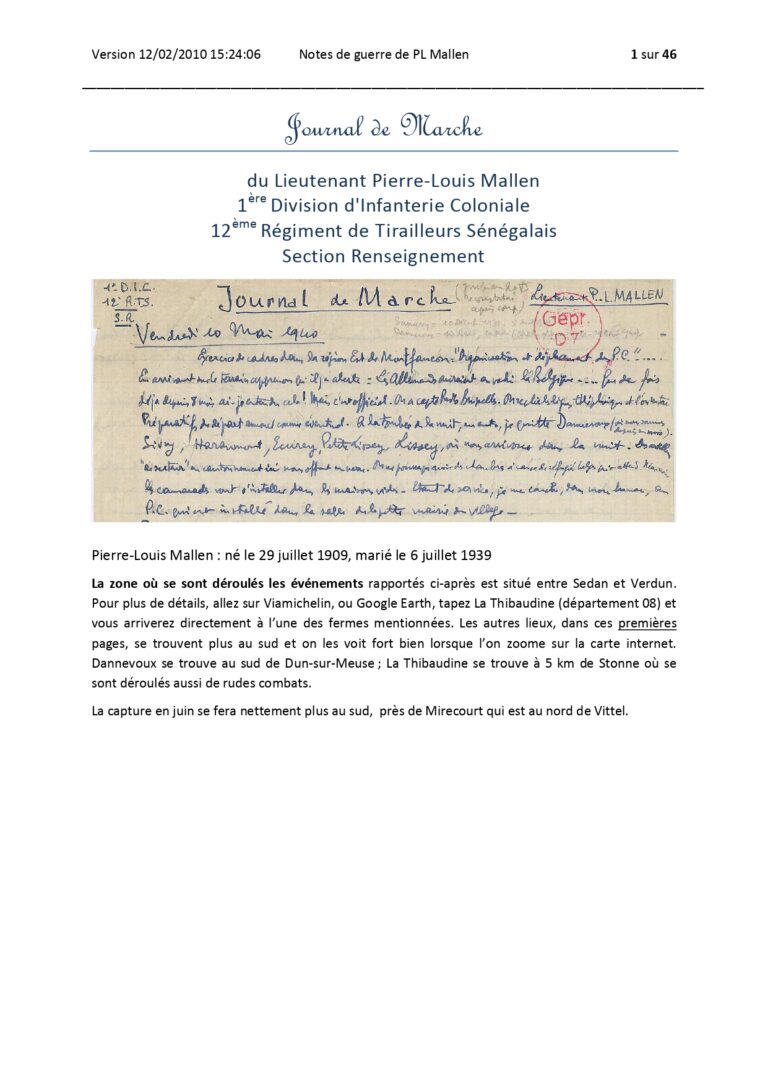 Version 12/02/2010 15:24:06 Notes de guerre de PL Mallen 1 sur 46
Journal de Marche
du Lieutenant Pierre-Louis Mallen
1ère Division d'Infanterie Coloniale
12ème Régiment de Tirailleurs Sénégalais
Section Renseignement
1e D.I.C. Journal de Marche Lieutenant P.L. MALLEN
12e R.T.S.
S.R. Gepr.
D 7
Vendredi 10 Mai 1940
Exercice de cadres dans la région Est de Montfaucon = "Organisation et déplacement du P.C."....
En arrivant sur le terrain apprenons qu'il y a alerte = Les Allemands auraient envahi la Belgique .... Que de fois
déjà depuis 8 mois ai-je entendu cela ! Mais c'est officiel. On a capté Radio Bruxelles.
Préparatifs de départ amont comme éventuel. A la tombée de la nuit, en auto, je quitte Dannevoux
Sivry, Haraumont, Ecurey, Petit Lissey, Lissey, où nous arrivons dans la nuit.
les camarades vont s'installer dans les maisons vides. Etant de service, je me couche, dans mon bureau, au
P.C. qui est installé dans la salle de la petite mairie du village
Pierre-Louis Mallen : né le 29 juillet 1909, marié le 6 juillet 1939
La zone où se sont déroulés les événements rapportés ci-après est situé entre Sedan et Verdun.
Pour plus de détails, allez sur Viamichelin, ou Google Earth, tapez La Thibaudine (département 08) et
vous arriverez directement à l'une des fermes mentionnées. Les autres lieux, dans ces premières
pages, se trouvent plus au sud et on les voit fort bien lorsque l'on zoome sur la carte internet.
Dannevoux se trouve au sud de Dun-sur-Meuse ; La Thibaudine se trouve à 5 km de Stonne où se
sont déroulés aussi de rudes combats.
La capture en juin se fera nettement plus au sud, près de Mirecourt qui est au nord de Vittel.